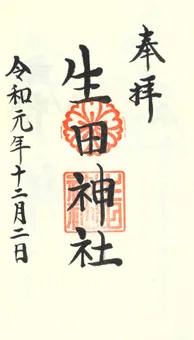 奉拝
生田神社
令和元年十二月二日